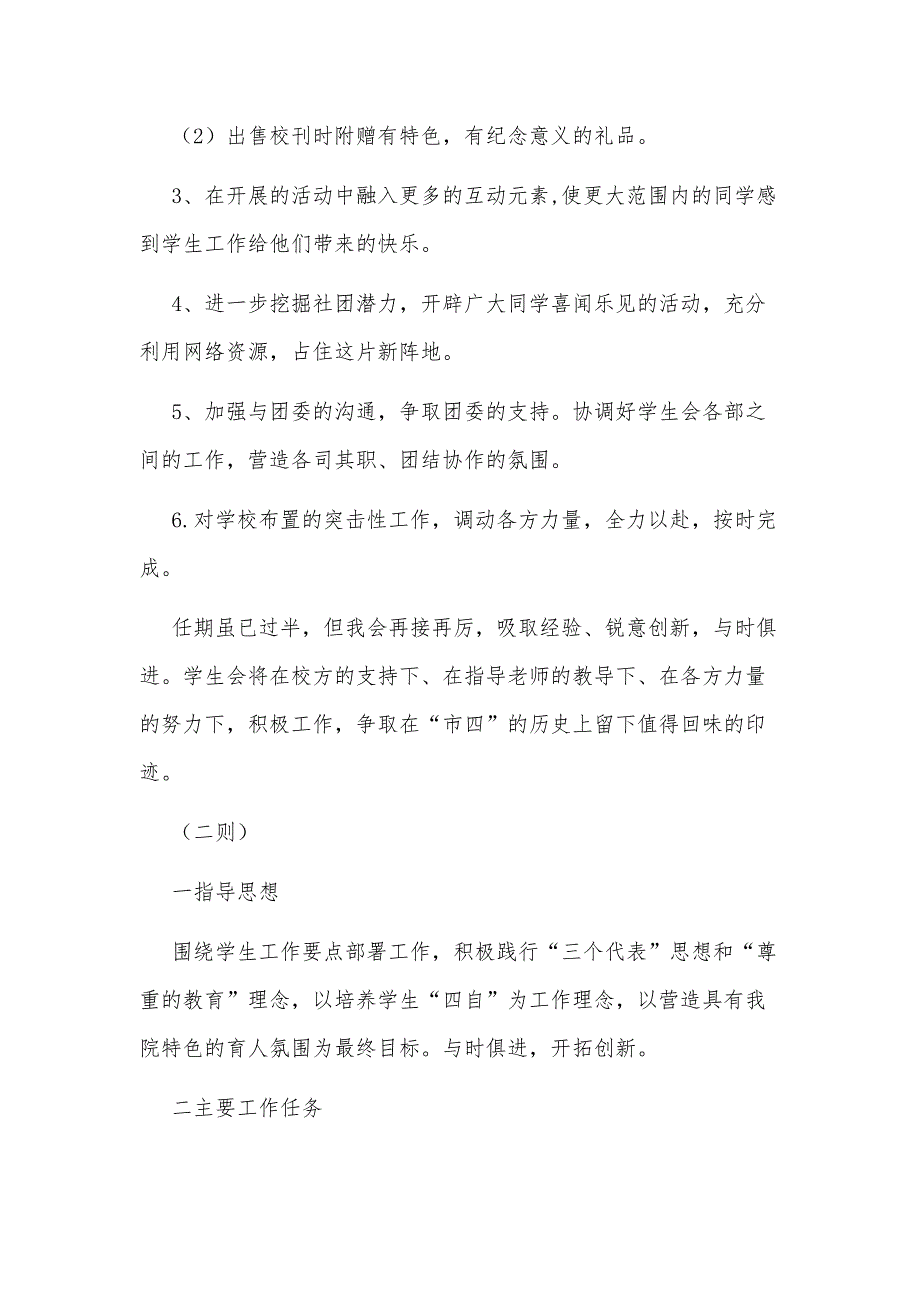 （2）出售校刊时附赠有特色，有纪念意义的礼品。
3、在开展的活动中融入更多的互动元素,使更大范围内的同学感
到学生工作给他们带来的快乐。
4、进一步挖掘社团潜力，开辟广大同学喜闻乐见的活动，充分
利用网络资源，占住这片新阵地。
5、加强与团委的沟通，争取团委的支持。协调好学生会各部之
间的工作，营造各司其职、团结协作的氛围。
6.对学校布置的突击性工作，调动各方力量，全力以赴，按时完
成。
任期虽已过半，但我会再接再厉，吸取经验、锐意创新，与时俱
进。学生会将在校方的支持下、在指导老师的教导下、在各方力量
的努力下，积极工作，争取在“市四”的历史上留下值得回味的印
迹。
（二则）
一指导思想
围绕学生工作要点部署工作，积极践行“三个代表”思想和“尊
重的教育”理念，以培养学生“四自”为工作理念，以营造具有我
院特色的育人氛围为最终目标。与时俱进，开拓创新。
二主要工作任务